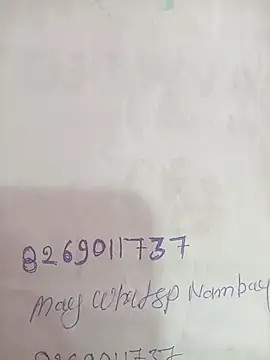 8269011737
may whatsp Nambay
8269011737